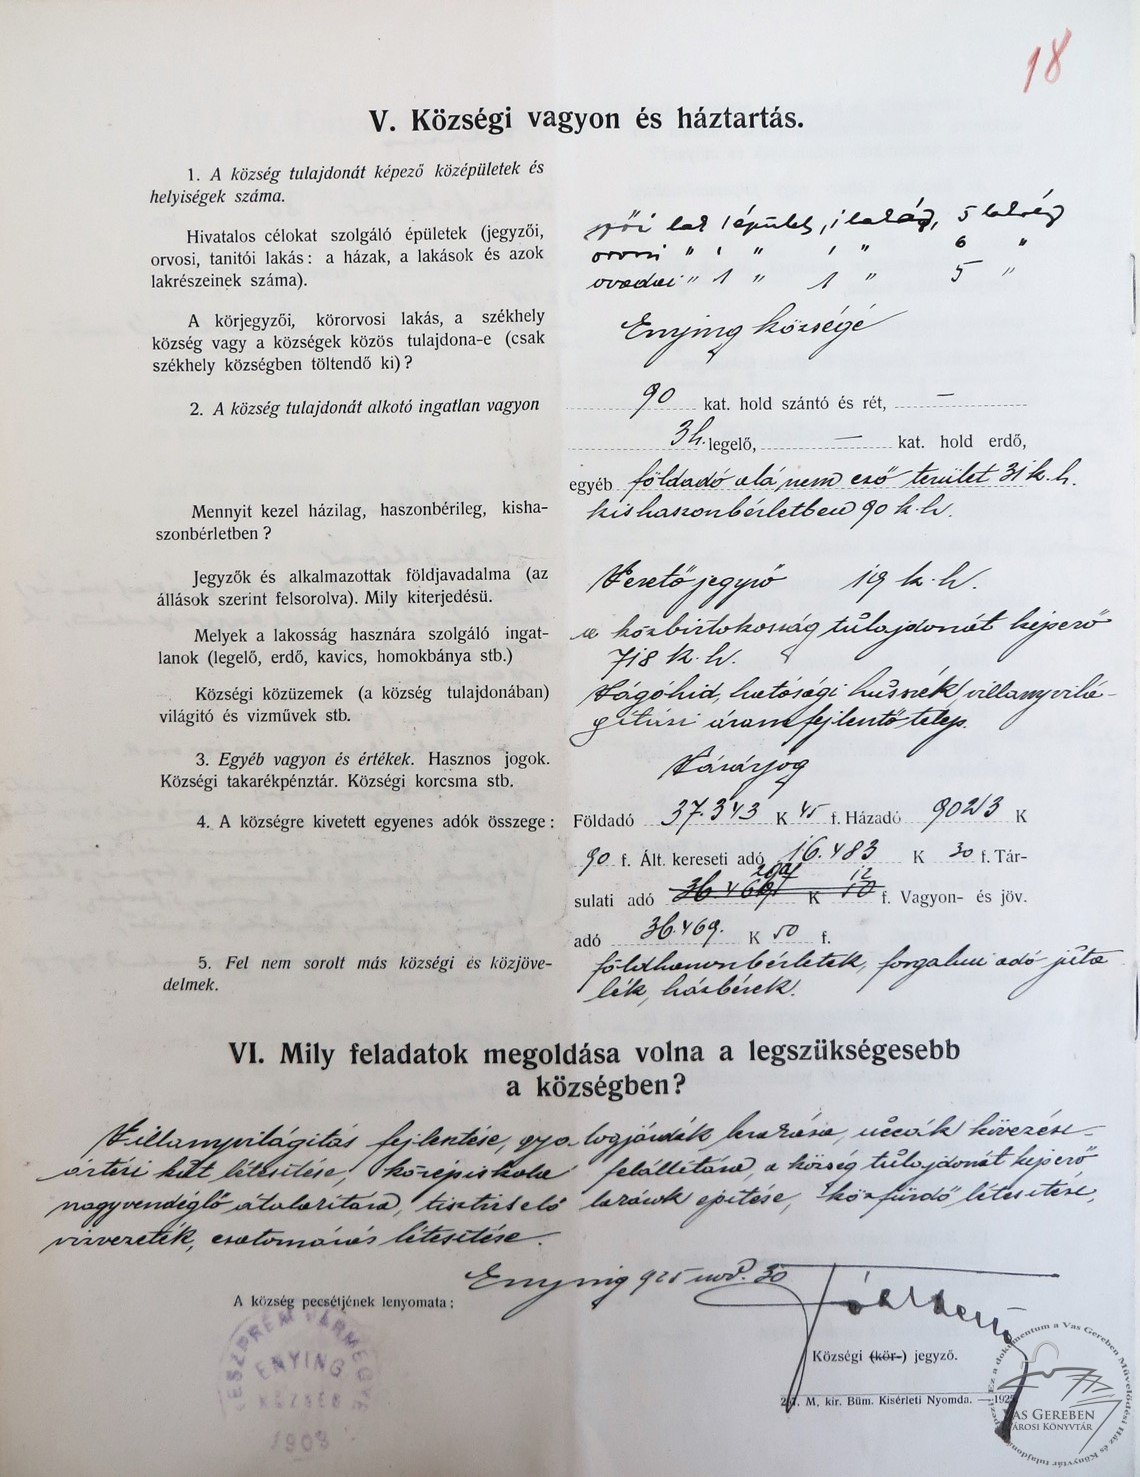 18
V. Községi vagyon és háztartás.
1. A község tulajdonát képező középületek és
helyiségek száma.
Hivatalos célokat szolgáló épületek (jegyzői,
orvosi, tanitói lakás: a házak, a lakások és azok
lakrészeinek száma).
lak 1 épület, 1 lakás, 5 lakrész
orvosi " 1 " 1 " 6 "
ovodai " 1 " 1 " 5 "
A körjegyzői, körorvosi lakás, a székhely
község vagy a községek közös tulajdona-e (csak
székhely községben töltendő ki)?
Enying községé
2. A község tulajdonát alkotó ingatlan vagyon
90 kat. hold szántó és rét, —
3 h. legelő, — kat. hold erdő,
egyéb földadó alá nem eső terület 31 k. h.
Mennyit kezel házilag, haszonbérileg, kisha-
szonbérletben?
kishaszonbérletben 90 k. h.
Jegyzők és alkalmazottak földjavadalma (az
állások szerint felsorolva). Mily kiterjedésü.
Vezető jegyző 19 k. h.
Melyek a lakosság hasznára szolgáló ingat-
lanok (legelő, erdő, kavics, homokbánya stb.)
a közbirtokosság tulajdonát képező
718 k. h.
Községi közüzemek (a község tulajdonában)
világitó és vizművek stb.
Vágóhid, hatósági husszék, villanyvilá-
gítási áramfejlentő telep.
3. Egyéb vagyon és értékek. Hasznos jogok.
Községi takarékpénztár. Községi korcsma stb.
Vásárjog
4. A községre kivetett egyenes adók összege:
Földadó 37.343 K 45 f. Házadó 9023 K
90 f. Ált. kereseti adó 16.483 K 30 f. Tár-
sulati adó K 12 f. Vagyon- és jöv.
adó 36.469. K 50 f.
5. Fel nem sorolt más községi és közjöve-
delmek.
földhaszonbérletek, forgalmi adó juta
lék, házbérek.
VI. Mily feladatok megoldása volna a legszükségesebb
a községben?
Villanyvilágitás fejlentése, gyalogjárdák lerakása, uccák kövezése
ártézi kut létesitése, középiskola felállitása, a község tulajdonát képező
nagyvendéglő átalakitása, tisztviselő lakások épitése, közfürdő létesitése,
vizvezeték, csatornázás létesitése.
Enying 925 nov. 30
A község pecsétjének lenyomata:
VESZPRÉM VÁRMEGYE
ENYING
KÖZSÉG
1908
Községi (kör-) jegyző.
M. kir. Büm. Kisérleti Nyomda. — 1925
Ez a dokumentum a Vas Gereben Művelődési Ház és Könyvtár tulajdona
VAS GEREBEN
VÁROSI KÖNYVTÁR